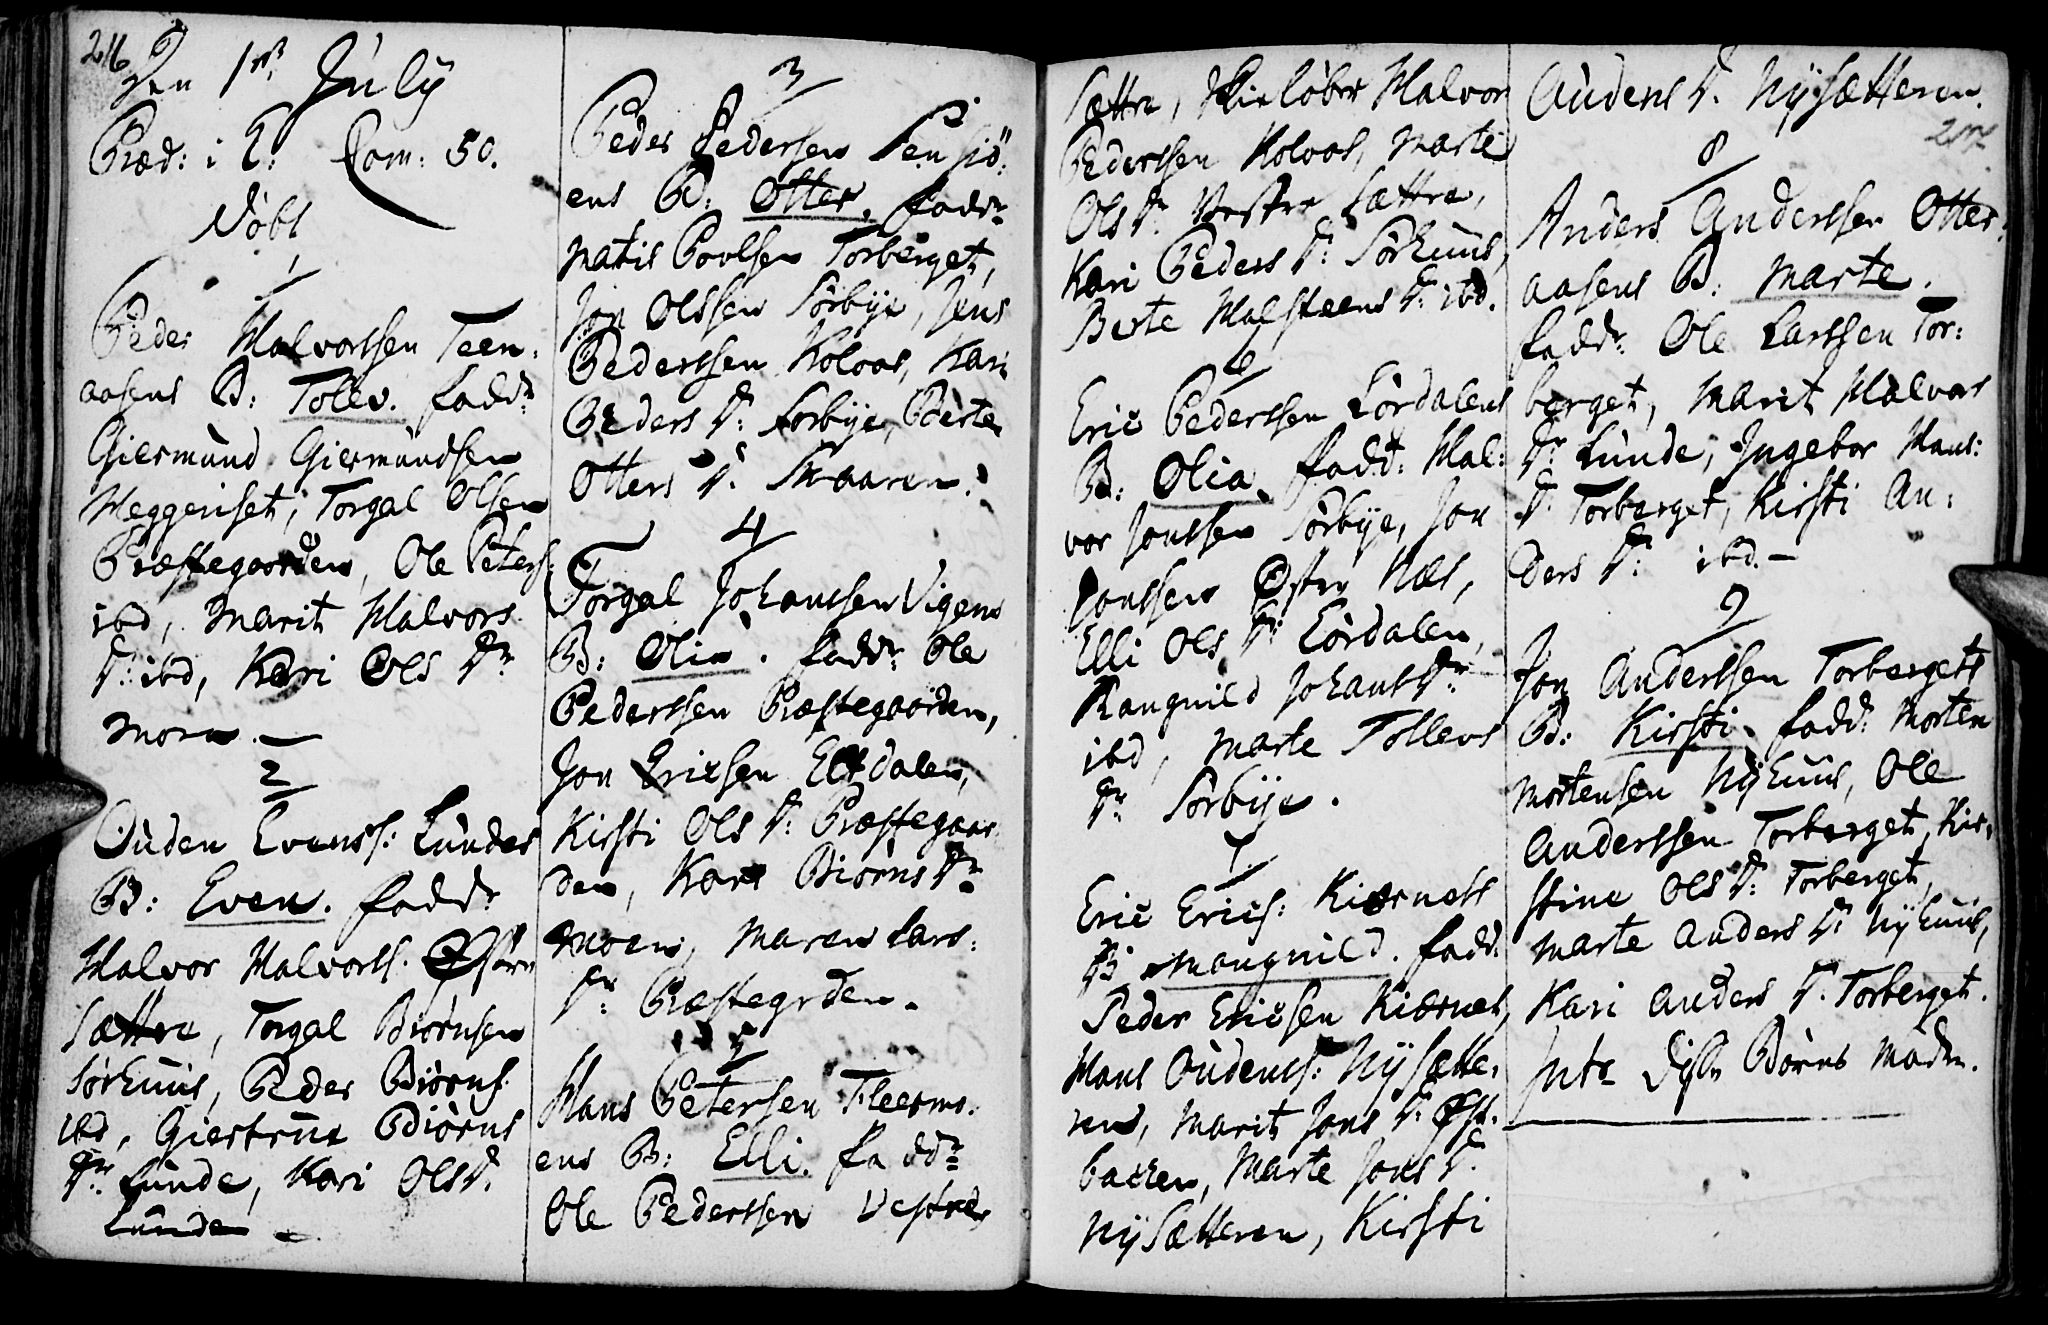 216
Den 1st July
Præd: i E: Com: 50.
Döbt
1
Peder Halvorssen Teen:
aasens B: Tolev. fadd.r
Giermund Giermundsen
Heggeriset, Torgal Olsen
Præstegaarden, Ole Peters:
ibd, Marit Halvors
D: ibd, Kari Ols D.r
Moen. —
2
Ouden Evenss: Lundes
B: Even. fadd.r
Halvor Halvorss. Østre
Sættre, Torgal Biörnsen
Sörhuus, Peder Biörns.
ibd, Giertrue Biörns
D.r Lunde, Kari Ols D.
Lunde —
3
Peder Pedersen Sensiö:
ens B: Otter. fadd.r
Matis Povlsen Torberget,
Jon Olssen Sörbye, Jens
Pederssen Koloas, Kari
Peders D: Sorbye, Berte
Otters D. Skaaren.
4
Torgal Johanssen Vigens
B: Olia. fadd.r Ole
Pederssen Præstegaarden,
Jon Ericsen Eltdalen,
Kirsti Ols D: Præstegaar
den, Kari Biörns D.r
Moen, Maren Lars:
D.r Præstegrden.
5
Hans Petersen Fleermo:
ens B: Elli. fadd.r
Ole Pederssen Vestre
Sættre, Skielöber Halvor
Pederssen Kolvos, Marte
Ols D.r Vestre Sættre,
Kari Peders D: Sörhuus,
Berte Halsteens D: ibd.
6
Eric Pederssen Lördalens
B: Olia. fadd: Hal:
vor Jonssen Sörbye, Jon
Jonssen Østre Næs,
Elli Ols D: Lördalen,
Rangnild Johans D.r
ibd, Marte Tollevs
D.r Sörbye.
7
Eric Erics: Kiærnets
B: Mangnild. fadd.
Peder Ericsen Kiærnet,
Hans Oudenss: Nysætte:
ren, Marit Jons D: Øst.
bacen, Marte Jons D.
Nysætteren, Kirsti
Audens D. Nysætteren.
217
8
Anders Anderssen Otter:
aasens B: Marte.
fadd.r Ole Larssen Tor:
berget, Marit Halvors
D.r Lunde, Ingebor Hans:
D. Torberget, Kirsti An:
ders D: ibd. —
9
Jon Anderssen Torbergets
B: Kirsti. fadd: Morten
Mortensen Nyhuus, Ole
Anderssen Torberget, Kir:
stine Ols D: Torberget,
Marte Anders D: Nyhuus,
Kari Anders D. Torberget.
Intr Börns Mödre.